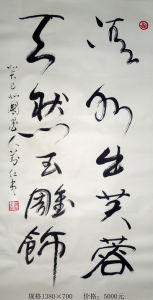 清水出芙蓉
天然去雕飾
癸巳
规格1380×700 价格：5000元